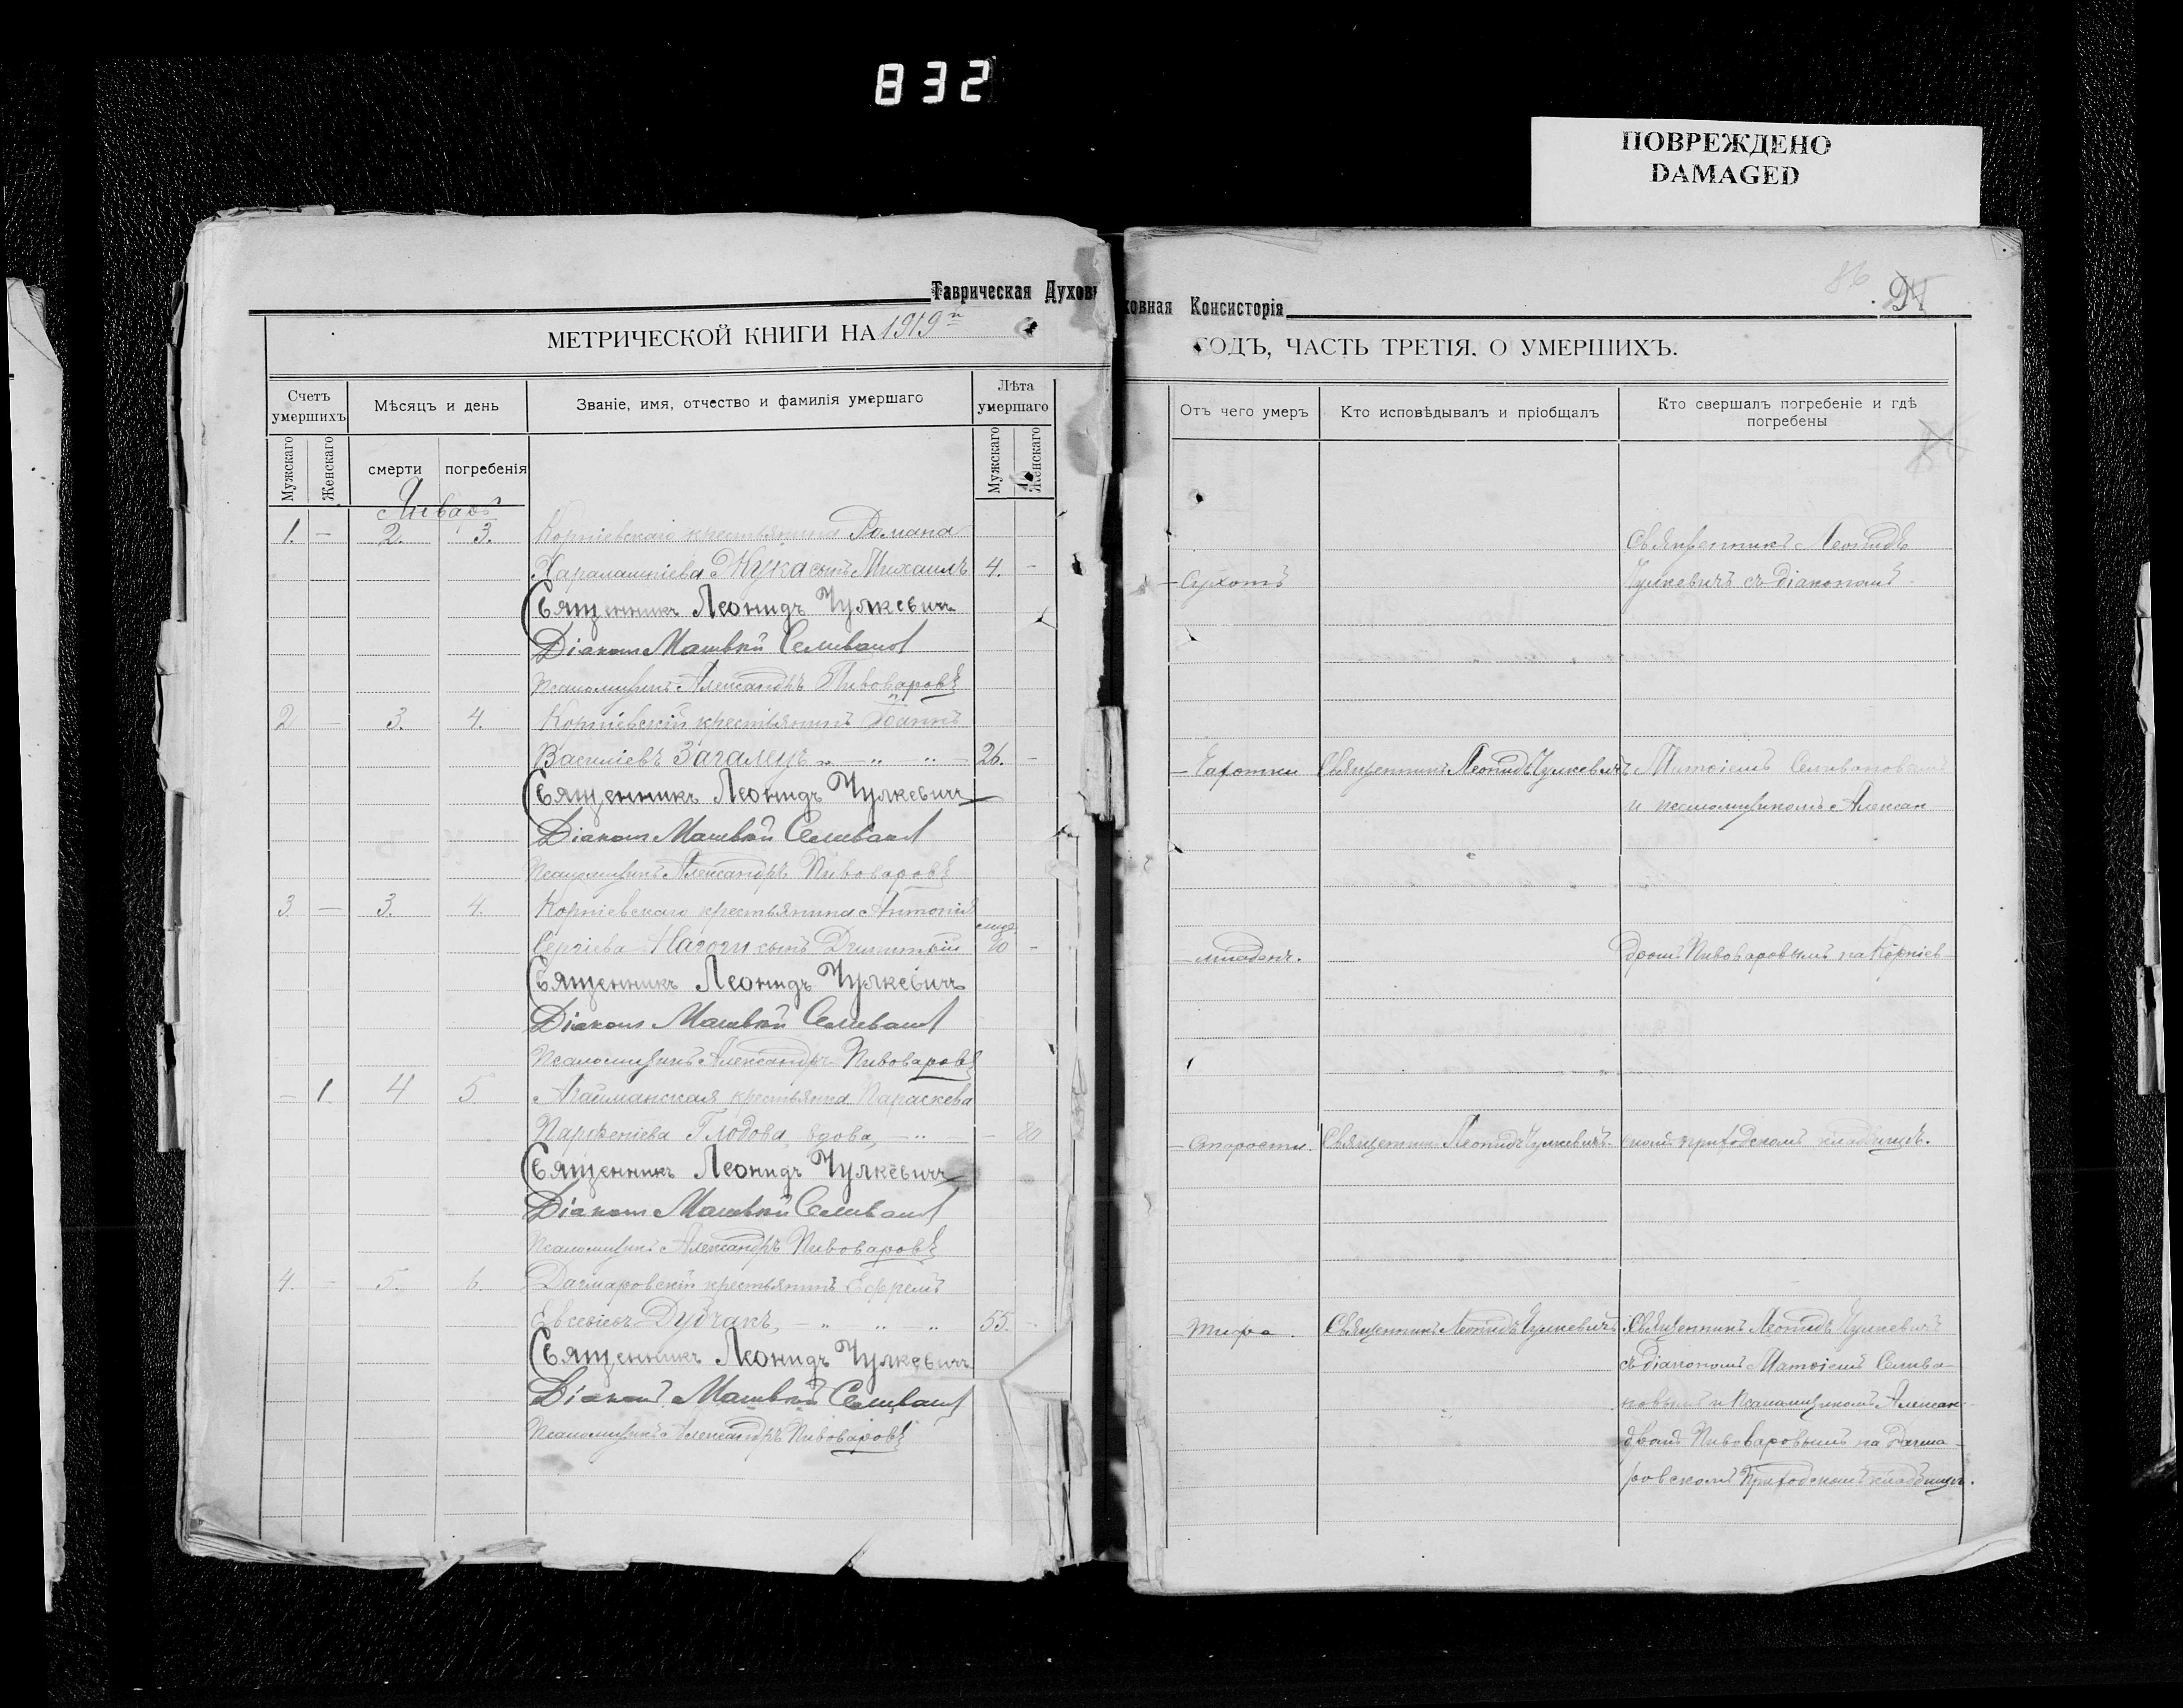 832
ПОВРЕЖДЕНО
DAMAGED
Таврическая Духовная Консисторія
86
МЕТРИЧЕСКОЙ КНИГИ НА 1919й ГОДЪ, ЧАСТЬ ТРЕТІЯ. О УМЕРШИХЪ.
Счетъ умершихъ
Мѣсяцъ и день
Званіе, имя, отчество и фамилія умершаго
Лѣта умершаго
Отъ чего умеръ
Кто исповѣдывалъ и пріобщалъ
Кто свершалъ погребеніе и гдѣ погребены
Мужскаго
Женскаго
смерти
погребенія
Мужскаго
Женскаго
Январь
1. — 2. 3. Корніевскаго крестьянина Романа
Священникъ Леонидъ
Харалампіева Жука сынъ Михаилъ 4. —
Чулкевичъ съ діакономъ
Священникъ Леонидъ Чулкевичъ
Діаконъ Матвѣй Селиванов
Псаломщикъ Александръ Пивоваровъ
2 — 3. 4. Корніевскій крестьянинъ Іоаннъ
Василіевъ Загалецъ 26. —
Священникъ Леонидъ Чулкевичъ Матѳіемъ Селивановымъ
Священникъ Леонидъ Чулкевичъ
и псаломщикомъ Алексан
Діаконъ Матвѣй Селиванов
Псаломщикъ Александръ Пивоваровъ
3 — 3. 4. Корніевскаго крестьянина Антонія
Сергіева сынъ Димитрій 10 —
младенч. дромъ Пивоваровымъ на Корніев
Священникъ Леонидъ Чулкевичъ
Діаконъ Матвѣй Селиванов
Псаломщикъ Александръ Пивоваровъ
— 1. 4 5 Агайманская крестьянка Параскева
Парфеніева Глодова, вдова, — 80
Старости. Священникъ Леонидъ Чулкевичъ скомъ приходскомъ кладбищѣ.
Священникъ Леонидъ Чулкевичъ
Діаконъ Матвѣй Селиванов
Псаломщикъ Александръ Пивоваровъ
4. — 5. 6. Дагмаровскій крестьянинъ Ефремъ
Евсевіевъ Дубчакъ, 55. —
Тифа. Священникъ Леонидъ Чулкевичъ Священникъ Леонидъ Чулкевичъ
Священникъ Леонидъ Чулкевичъ
съ діакономъ Матѳіемъ Селива
Діаконъ Матвѣй Селиванов
новымъ и псаломщикомъ Алексан
Псаломщикъ Александръ Пивоваровъ
дромъ Пивоваровымъ на Дагма
ровскомъ Приходскомъ кладбищѣ.